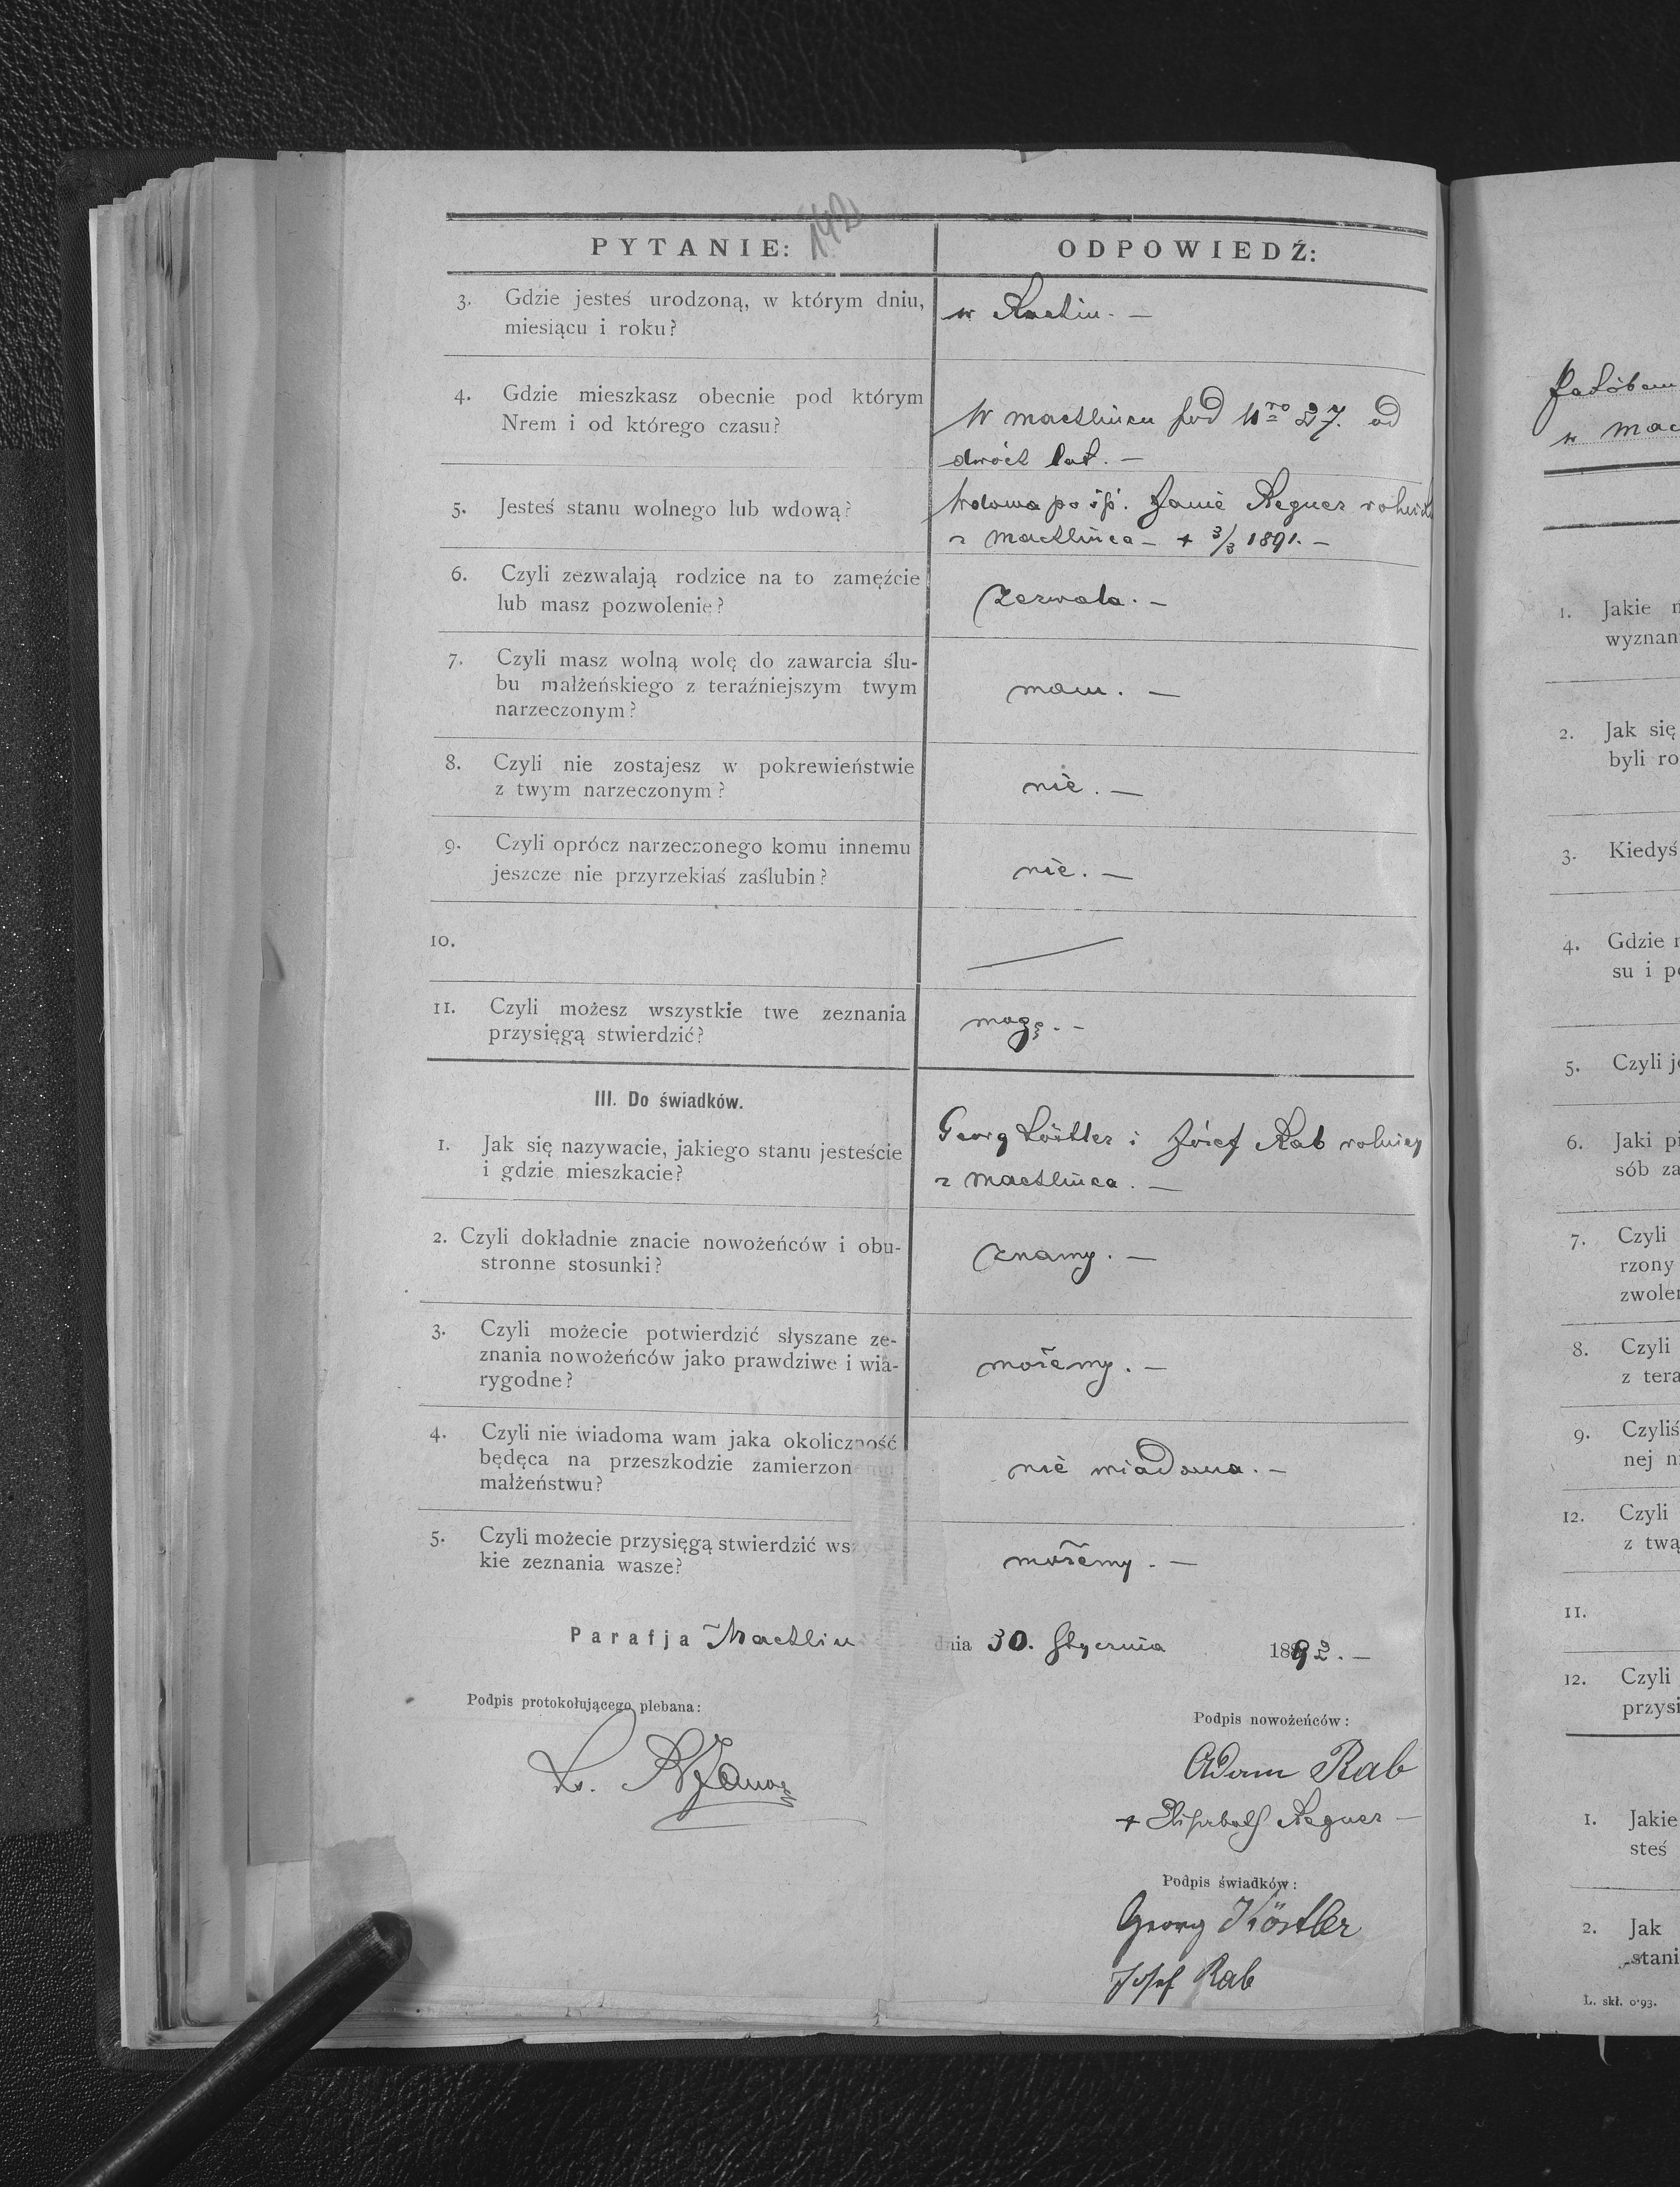 142
PYTANIE: ODPOWIEDŹ:
3. Gdzie jesteś urodzoną, w którym dniu,
miesiącu i roku?
w
4. Gdzie mieszkasz obecnie pod którym
Nrem i od którego czasu?
W Machlińcu pod Nro 27. od
dwóch lat. —
5. Jesteś stanu wolnego lub wdową?
Wdowa po śp. Janie Regner
z Machlińca — + 3/3 1891. —
6. Czyli zezwalają rodzice na to zamęźcie
lub masz pozwolenie?
zezwala. —
7. Czyli masz wolną wolę do zawarcia ślu-
bu małżeńskiego z teraźniejszym twym
narzeczonym?
mam. —
8. Czyli nie zostajesz w pokrewieństwie
z twym narzeczonym?
nie. —
9. Czyli oprócz narzeczonego komu innemu
jeszcze nie przyrzekłaś zaślubin?
nie. —
10.
11. Czyli możesz wszystkie twe zeznania
przysięgą stwierdzić?
mogę. —
III. Do świadków.
1. Jak się nazywacie, jakiego stanu jesteście
i gdzie mieszkacie?
Georg Köstler i Józef Rab rolnicy
z Machlińca. —
2. Czyli dokładnie znacie nowożeńców i obu-
stronne stosunki?
znamy. —
3. Czyli możecie potwierdzić słyszane ze-
znania nowożeńców jako prawdziwe i wia-
rygodne?
możemy. —
4. Czyli nie wiadoma wam jaka okoliczność
będęca na przeszkodzie zamierzonemu
małżeństwu?
nie wiadoma. —
5. Czyli możecie przysięgą stwierdzić wszyst-
kie zeznania wasze?
możemy. —
Parafja Machlin dnia 30. Stycznia 1892. —
Podpis protokołującego plebana:
Podpis nowożeńców:
Adam Rab
+ Elisabeth Regner —
Podpis świadków:
Georg Köstler
Josef Rab
w Mac
1. Jakie
wyznan
2. Jak się
byli ro
3. Kiedyś
4. Gdzie
su i p
5. Czyli j
6. Jaki pi
sób za
7. Czyli
rzony
zwolen
8. Czyli
z tera
9. Czyliś
nej n
12. Czyli
z twą
11.
12. Czyli
przysi
1. Jakie
steś
2. Jak
stani
L. skł. 0·93.